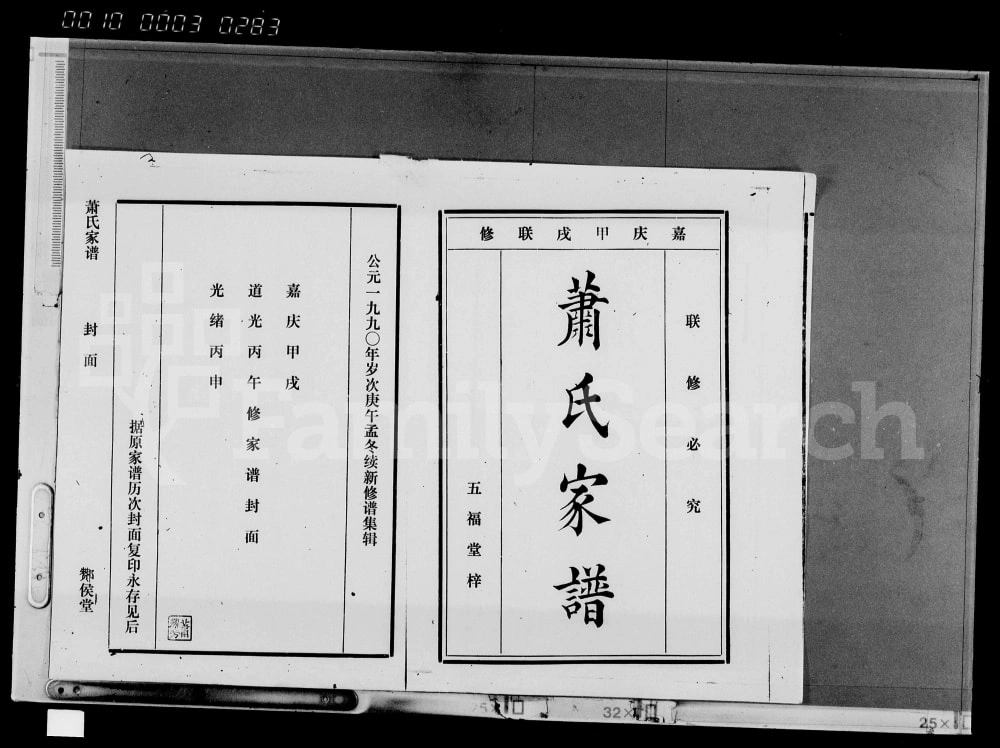 0010 0003 0283
嘉庆甲戌联修
联修必究
蕭氏家譜
五福堂梓
公元一九九〇年岁次庚午孟冬续新修谱集辑
嘉庆甲戌
道光丙午修家谱封面
光绪丙申
据原家谱历次封面复印永存见后
萧氏家谱 封面 酂侯堂
FamilySearch
32×
25×